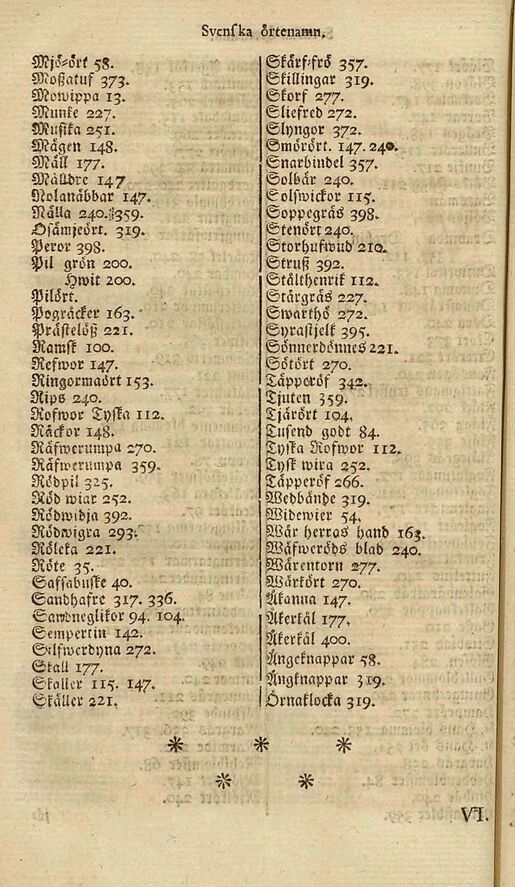 Svenska örtenamn.
Mjö-ört 58.
Moßatuf 373.
Mowippa 13.
Munke 227.
Musika 251.
Mågen 148.
Mäll 177.
Målldre 147
Nolanåbbar 147.
Nälla 240. 359.
Osämjeört. 319.
Peror 398.
Pil grön 200.
Hwit 200.
Pilört.
Pogräcker 163.
Prästelöß 221.
Ramsk 100.
Refwor 147.
Ringormaört 153.
Rips 240.
Rofwor Tyska 112.
Räckor 148.
Räfwerumpa 270.
Räfwerumpa 359.
Rödpil 325.
Röd wiar 252.
Rödwidja 392.
Rödwigra 293.
Röleka 221.
Röte 35.
Saffabuske 40.
Sandhafre 317. 336.
Sandneglikor 94. 104.
Sempertin 142.
Silfwerdyna 272.
Skall 177.
Skaller 115. 147.
Skäller 221.
Skärf-frö 357.
Skillingar 319.
Skorf 277.
Sliefred 272.
Slyngor 372.
Smörört. 147. 240.
Snarbindel 357.
Solbär 240.
Solswickor 115.
Soppegräs 398.
Stenört 240.
Storhufwud 210.
Struß 392.
Stålthenrik 112.
Stärgräs 227.
Swarthö 272.
Syrastjelk 395.
Sönnerdönnes 221.
Sötört 270.
Täpperöf 342.
Tjuten 359.
Tjärört 104.
Tusend godt 84.
Tyska Rofwor 112.
Tysk wira 252.
Täpperöf 266.
Wedbände 319.
Widewier 54.
Wår herras hand 163.
Wäfweröds blad 240.
Wärentorn 277.
Wärkört 270.
Åkanna 147.
Åkerkål 177.
Åkerkål 400.
Ängeknappar 58.
Ängknappar 319.
Örnaklocka 319.
VI.